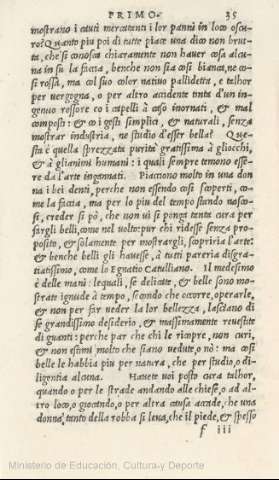 PRIMO. 35
mostrano i cauti mercatanti i lor panni in loco oscu
ro? Quanto piu poi di tutte piace una dico non brut-
ta, che si conosca chiaramente non hauer cosa alcu
na in su la faccia, benche non sia cosi bianca, ne co
si rossa, ma col suo color natiuo pallidetta, e talhor
per uergogna, o per altro accidente tinta d'un in-
genuo rossore co i capelli à caso inornati, & mal
composti: & co i gesti simplici, & naturali, senza
mostrar industria, ne studio d'esser bella? Que
sta è quella sprezzata purità gratissima à gliocchi,
& à glianimi humani: i quali sempre temono esse-
re da l'arte ingannati. Piacciono molto in una don
na i bei denti, perche non essendo cosi scoperti, co-
me la faccia, ma per lo piu del tempo stando nasco-
si, creder si pò, che non ui si ponga tanta cura per
fargli belli, come nel uolto: pur chi ridesse senza pro-
posito, & solamente per mostrargli, scopriria l'arte:
& benche belli gli hauesse, à tutti pareria disgra-
tiatissimo, come lo Egnatio Catulliano. Il medesimo
è delle mani: lequali, se delicate, & belle sono mo-
strate ignude à tempo, secondo che occorre, operarle,
& non per far ueder la lor bellezza, lasciano di
se grandissimo desiderio, & massimamente reuestite
di guanti: perche par che chi le ricopre, non curi,
& non estimi molto che siano uedute, o nò: ma cosi
belle le habbia piu per natura, che per studio, o di-
ligentia alcuna. Hauete uoi posto cura talhor,
quando o per le strade andando alle chiese, o ad al-
tro loco, o giocando, o per altra causa accade, che una
donna tanto della robba si leua, che il piede, & spesso
f iii
Ministerio de Educación, Cultura y Deporte